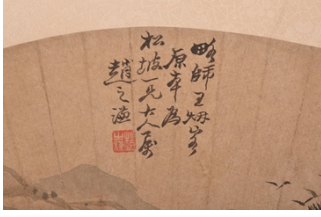 略師王烟客
原本為
松坡一兄大人屬
趙之謙